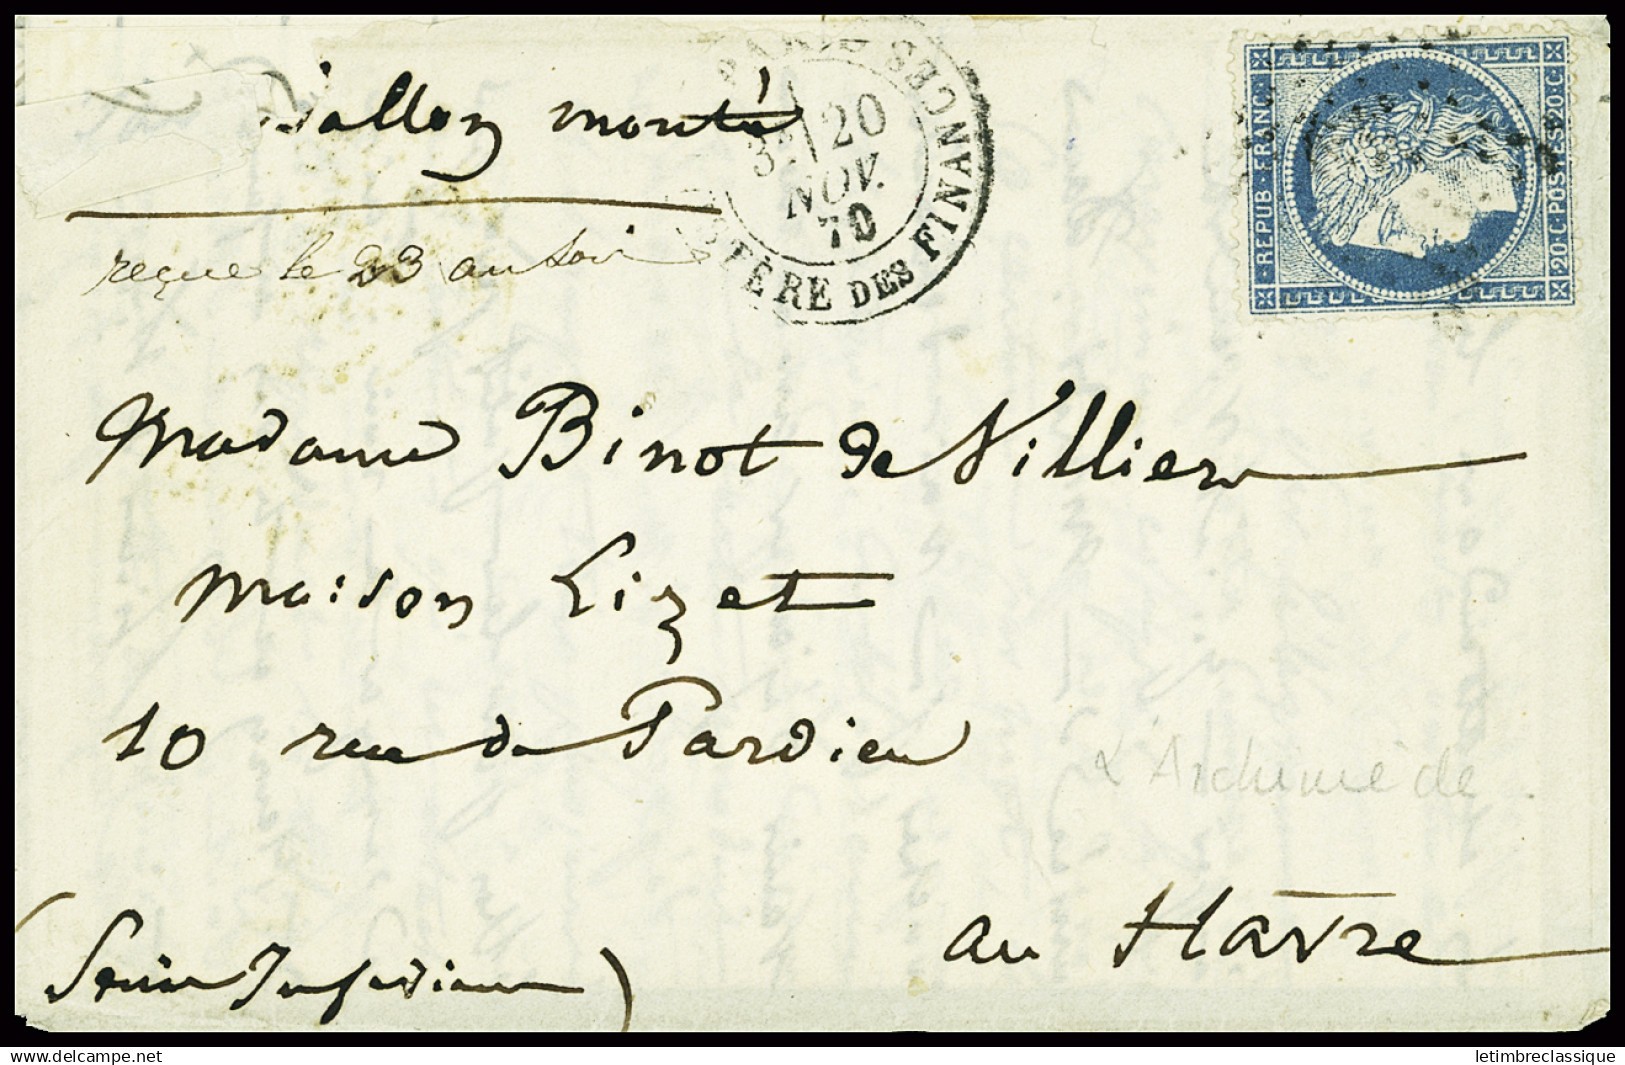 Ballon monté
PARIS
3E 20
NOV.
70
MINISTÈRE DES FINANCES
· REPUB · FRANC ·
20 · C · POSTES · 20 · C ·
reçue le 23 au soir
Madame Binot de Villiers
maison Lizet
10 rue de Tardieu
L'Archimède
au Havre
(Seine Inférieure)
delcampe.net
letimbreclassique